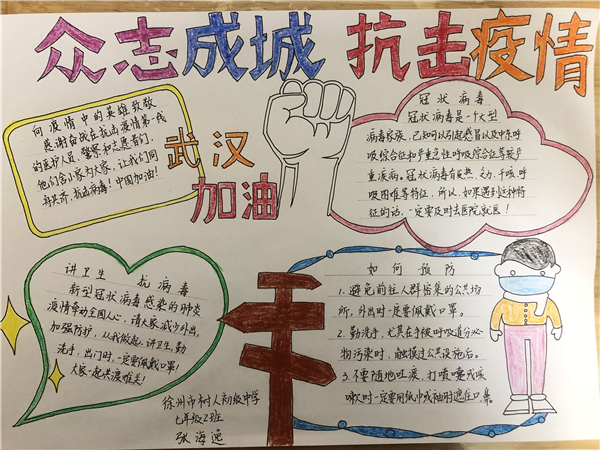 众志成城 抗击疫情
向疫情中的英雄致敬
感谢奋战在抗击疫情第一线
的医护人员、警察和志愿者们,
他们舍小家为大家,让我们同
舟共济,抗击病毒!中国加油!
武汉
加油
冠状病毒
冠状病毒是一个大型
病毒家族,已知可以引起感冒以及中东呼
吸综合征和严重急性呼吸综合征等较严
重疾病。冠状病毒有发热、乏力、干咳、呼
吸困难等特征,所以,如果遇到这种特
征的话,一定要及时去医院就医!
讲卫生 抗病毒
新型冠状病毒感染的肺炎
疫情牵动全国人心,请大家减少外出,
加强防护,从我做起,讲卫生,勤
洗手,出门时,一定要佩戴口罩!
大家一起共渡难关!
徐州市树人初级中学
七年级2班
张海逸
如何预防
1.避免前往人群密集的公共场
所,外出时一定要佩戴口罩。
2.勤洗手,尤其在手被呼吸道分泌
物污染时、触摸过公共设施后。
3.不要随地吐痰,打喷嚏或咳
嗽时一定要用纸巾或袖肘遮住口鼻。